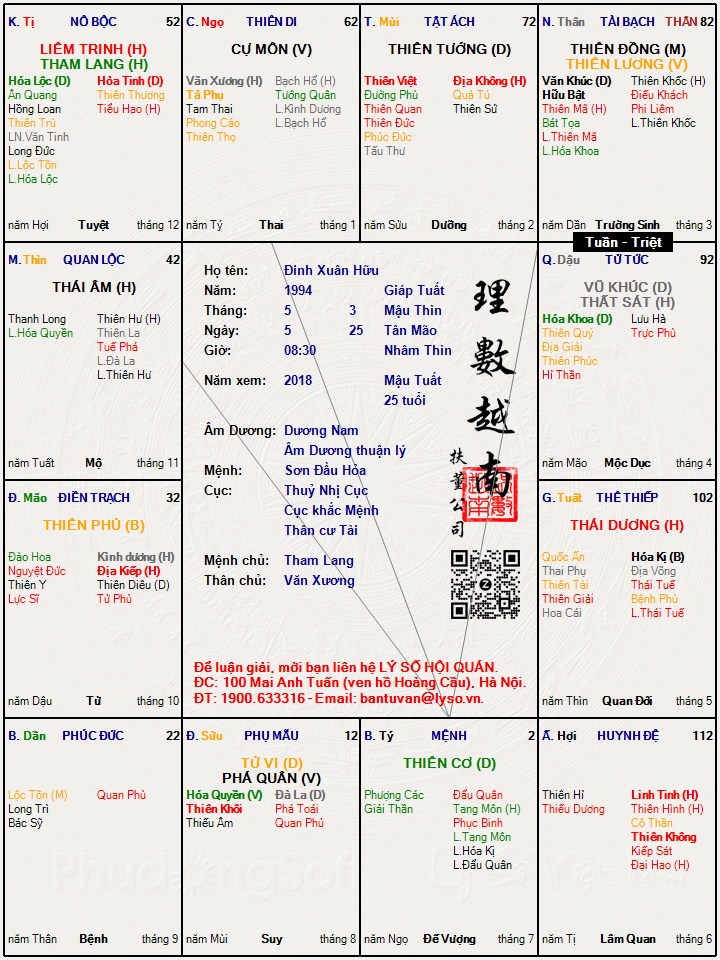 K. Tị NÔ BỘC 52
LIÊM TRINH (H)
THAM LANG (H)
Hóa Lộc (D) Hỏa Tinh (D)
Ân Quang Thiên Thương
Hồng Loan Tiểu Hao (H)
Thiên Trù
LN.Văn Tinh
Long Đức
L.Lộc Tồn
L.Hóa Lộc
năm Hợi Tuyệt tháng 12
C. Ngọ THIÊN DI 62
CỰ MÔN (V)
Văn Xương (H) Bạch Hổ (H)
Tả Phụ Tướng Quân
Tam Thai L.Kình Dương
Phong Cáo L.Bạch Hổ
Thiên Thọ
năm Tý Thai tháng 1
T. Mùi TẬT ÁCH 72
THIÊN TƯỚNG (D)
Thiên Việt Địa Không (H)
Đường Phù Quả Tú
Thiên Quan Thiên Sứ
Thiên Đức
Phúc Đức
Tấu Thư
năm Sửu Dưỡng tháng 2
N. Thân TÀI BẠCH THÂN 82
THIÊN ĐỒNG (M)
THIÊN LƯƠNG (V)
Văn Khúc (D) Thiên Khốc (H)
Hữu Bật Điếu Khách
Thiên Mã (H) Phi Liêm
Bát Tọa L.Thiên Khốc
L.Thiên Mã
L.Hóa Khoa
năm Dần Trường Sinh tháng 3
Tuần - Triệt
M. Thìn QUAN LỘC 42
THÁI ÂM (H)
Thanh Long Thiên Hư (H)
L.Hóa Quyền Thiên La
Tuế Phá
L.Đà La
L.Thiên Hư
năm Tuất Mộ tháng 11
Họ tên: Đinh Xuân Hữu
Năm: 1994 Giáp Tuất
Tháng: 5 3 Mậu Thìn
Ngày: 5 25 Tân Mão
Giờ: 08:30 Nhâm Thìn
Năm xem: 2018 Mậu Tuất
25 tuổi
Âm Dương: Dương Nam
Âm Dương thuận lý
Mệnh: Sơn Đầu Hỏa
Cục: Thuỷ Nhị Cục
Cục khắc Mệnh
Thân cư Tài
Mệnh chủ: Tham Lang
Thân chủ: Văn Xương
理數越南
扶董公司
Để luận giải, mời bạn liên hệ LÝ SỐ HỘI QUÁN.
ĐC: 100 Mai Anh Tuấn (ven hồ Hoàng Cầu), Hà Nội.
ĐT: 1900.633316 - Email: bantuvan@lyso.vn.
Q. Dậu TỬ TỨC 92
VŨ KHÚC (D)
THẤT SÁT (H)
Hóa Khoa (D) Lưu Hà
Thiên Quý Trực Phù
Địa Giải
Thiên Phúc
Hỉ Thần
năm Mão Mộc Dục tháng 4
Đ. Mão ĐIỀN TRẠCH 32
THIÊN PHỦ (B)
Đào Hoa Kình dương (H)
Nguyệt Đức Địa Kiếp (H)
Thiên Y Thiên Diêu (D)
Lực Sĩ Tử Phù
năm Dậu Tử tháng 10
G. Tuất THÊ THIẾP 102
THÁI DƯƠNG (H)
Quốc Ấn Hóa Kị (B)
Thai Phụ Địa Võng
Thiên Tài Thái Tuế
Thiên Giải Bệnh Phù
Hoa Cái L.Thái Tuế
năm Thìn Quan Đới tháng 5
B. Dần PHÚC ĐỨC 22
Lộc Tồn (M) Quan Phù
Long Trì
Bác Sỹ
năm Thân Bệnh tháng 9
Đ. Sửu PHỤ MẪU 12
TỬ VI (D)
PHÁ QUÂN (V)
Hóa Quyền (V) Đà La (D)
Thiên Khôi Phá Toái
Thiếu Âm Quan Phủ
năm Mùi Suy tháng 8
B. Tý MỆNH 2
THIÊN CƠ (D)
Phượng Các Đẩu Quân
Giải Thần Tang Môn (H)
Phục Binh
L.Tang Môn
L.Hóa Kị
L.Đẩu Quân
năm Ngọ Đế Vượng tháng 7
Ấ. Hợi HUYNH ĐỆ 112
Thiên Hỉ Linh Tinh (H)
Thiếu Dương Thiên Hình (H)
Cô Thần
Thiên Không
Kiếp Sát
Đại Hao (H)
năm Tị Lâm Quan tháng 6